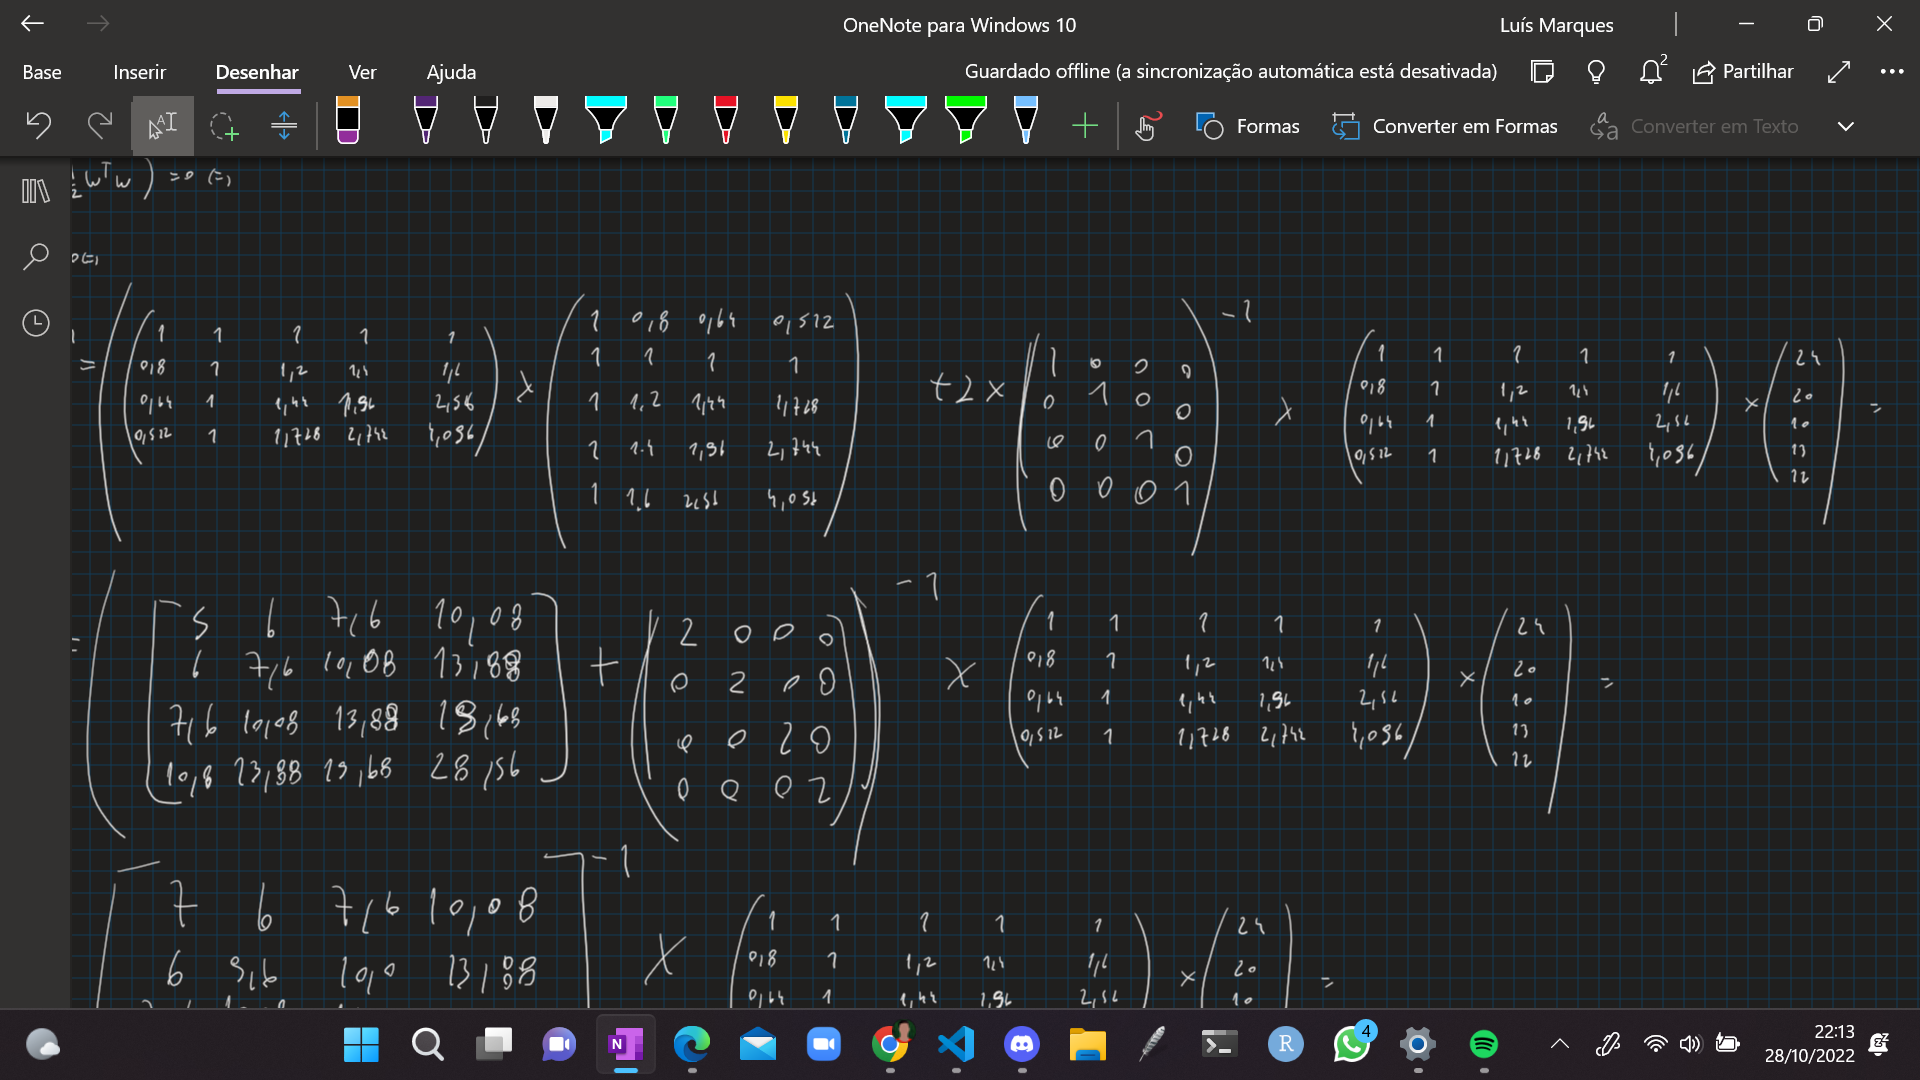 OneNote para Windows 10
Luís Marques
Base Inserir Desenhar Ver Ajuda
Guardado offline (a sincronização automática está desativada)
2
Partilhar
Formas
Converter em Formas
Converter em Texto
2 (wᵀw) = 0 (=)
0 (=)
= ( ( 1 1 1 1 1
0,8 1 1,2 1,4 1,6
0,64 1 1,44 1,96 2,56
0,512 1 1,728 2,744 4,096 ) × ( 1 0,8 0,64 0,512
1 1 1 1
1 1,2 1,44 1,728
1 1.4 1,96 2,744
1 1.6 2,56 4,096 ) + 2 × ( 1 0 0 0
0 1 0 0
0 0 1 0
0 0 0 1 ) )^-1 × ( 1 1 1 1 1
0,8 1 1,2 1,4 1,6
0,64 1 1,44 1,96 2,56
0,512 1 1,728 2,744 4,096 ) × ( 24
20
10
13
12 ) =
= ( [ 5 6 7,6 10,08
6 7,6 10,08 13,88
7,6 10,08 13,88 19,68
10,8 13,88 19,68 28,56 ] + ( 2 0 0 0
0 2 0 0
0 0 2 0
0 0 0 2 ) )^-1 × ( 1 1 1 1 1
0,8 1 1,2 1,4 1,6
0,64 1 1,44 1,96 2,56
0,512 1 1,728 2,744 4,096 ) × ( 24
20
10
13
12 ) =
[ 7 6 7,6 10,08
6 9,6 10,0 13,88 ]^-1 × ( 1 1 1 1 1
0,8 1 1,2 1,4 1,6
0,64 1 1,44 1,96 2,56 × ( 24
20
10 =
4
22:13
28/10/2022